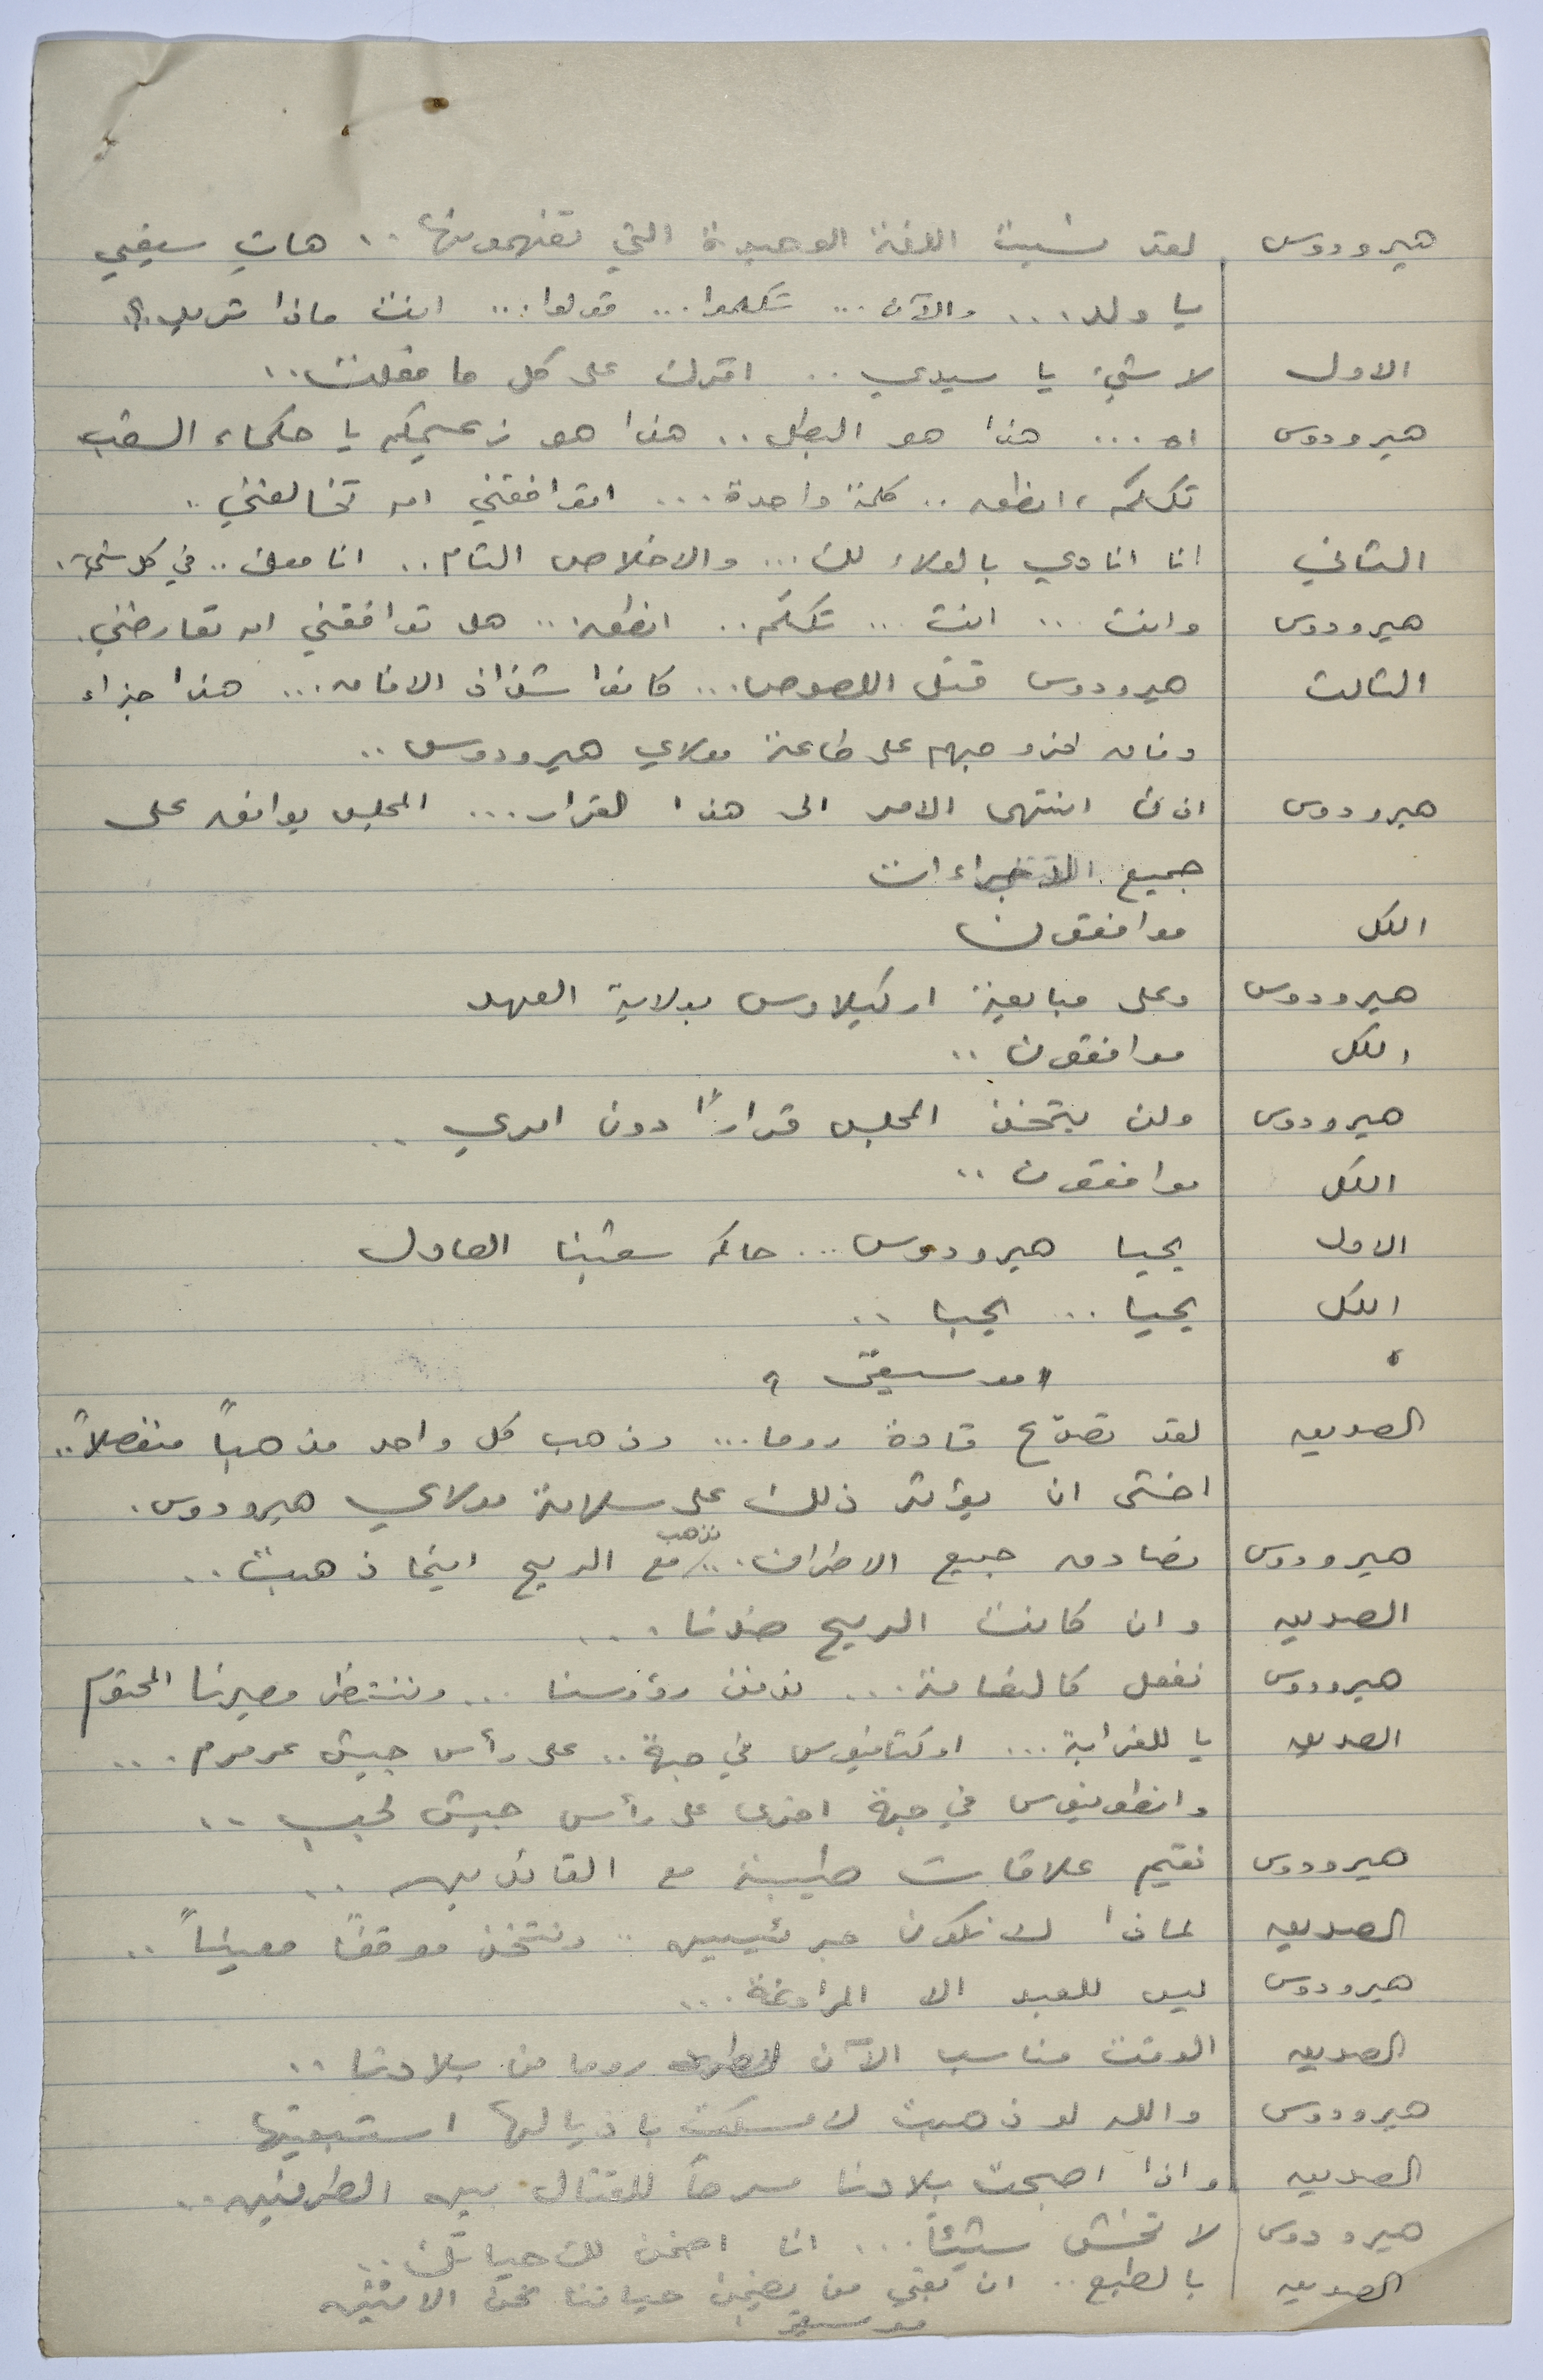 هيرودوس لقد نسيت اللغة الوحيدة التي تفهمونها .. هات سيفي
يا ولد ... والآن ... تكلموا ... قولوا ... انت ماذا تريد؟
الاول لا شيء يا سيدي .. اقرك على كل ما فعلت ..
هيرودوس اه ... هذا هو البطل .. هذا هو زعيمكم يا حكماء الشعب
تكلم، انطق .. كلمة واحدة ... اتوافقني ام تخالفني ..
الثاني انا انادي بالولاء لك ... والاخلاص التام .. انا معك .. في كل شيء.
هيرودوس وانت ... انت ... تكلم .. انطق .. هل توافقني ام تعارضني.
الثالث هيرودوس قتل اللصوص ... كانوا شذاذ الافاق ... هذا جزاء
وفاق لخروجهم على طاعة مولاي هيرودوس ..
هيرودوس اذن انتهى الامر الى هذا القرار ... المجلس يوافق على
جميع الاجراءات
الكل موافقون
هيرودوس وعلى مبايعة اركيلاوس بولاية العهد
الكل موافقون ..
هيرودوس ولن يتخذ المجلس قراراً دون امري ..
الكل موافقون ..
الاول يحيا هيرودوس ... حاكم شعبنا العادل
الكل يحيا ... يحيا ..
" موسيقى "
الصديق لقد تصدّع قادة روما ... وذهب كل واحد مذهباً منفصلاً ..
اخشى ان يؤثر ذلك على سلامة مولاي هيرودوس.
هيرودوس نصادق جميع الاطراف ... نذهب مع الريح اينما ذهبت ..
الصديق وان كانت الريح ضدنا ...
هيرودوس نفعل كالنعامة ... ندفن رؤوسنا ... وننتظر مصيرنا المحتوم
الصديق يا للغرابة ... اوكتافيوس في جهة .. على رأس جيش عرمرم ...
وانطونيوس في جهة اخرى على رأس جيش لجب ..
هيرودوس نقيم علاقات طيبة مع القائدين ..
الصديق لماذا لا نكون جريئيين .. ونتخذ موقفاً معيناً ..
هيرودوس ليس للعبد الا المراوغة ...
الصديق الوقت مناسب الآن لطرد روما من بلادنا ..
هيرودوس والله لو ذهبت لامسكت باذيالها استبقيتها
الصديق واذا اصبحت بلادنا مسرحاً للقتال بين الطرفين ..
هيرودوس لا تخش شيئاً ... انا اضمن لك حياتك ..
الصديق بالطبع .. ان بقي من يضمن حياتنا نحن الاثنين
موسيقى